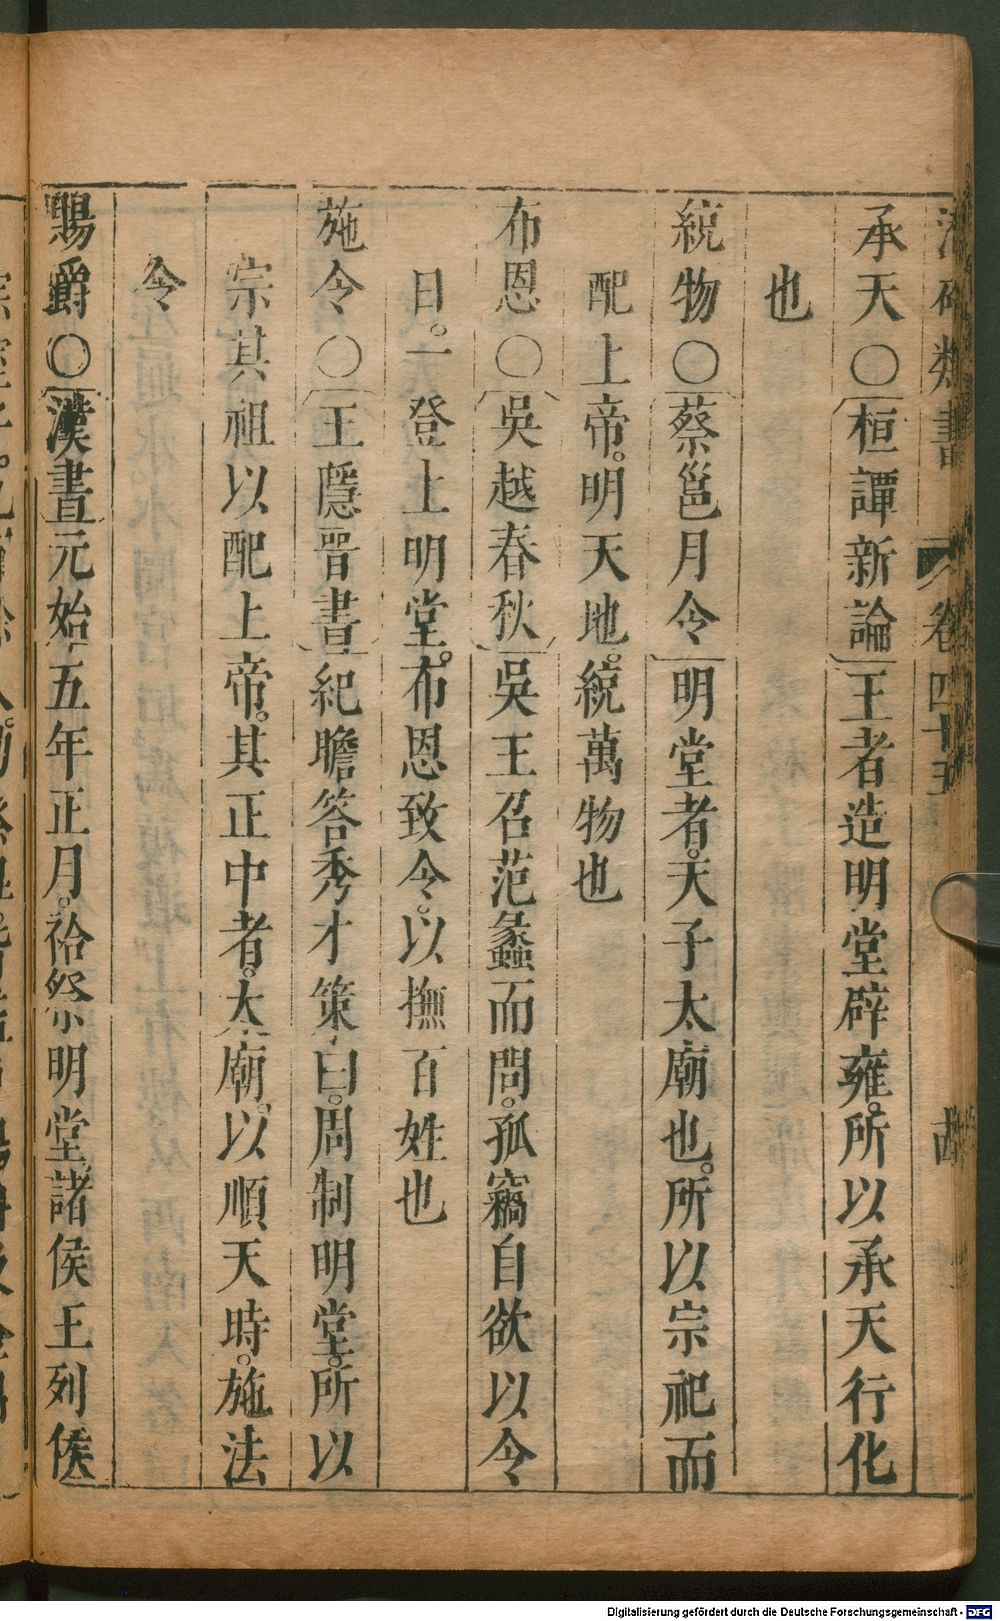 潛確類書 卷四十五
承天〇桓譚新論王者造明堂辟雍。所以承天行化
也
統物〇蔡邕月令明堂者。天子太廟也。所以宗祀而
配上帝。明天地。統萬物也
布恩〇吳越春秋吳王召范蠡而問。孤竊自欲以今
日。一登上明堂。布恩致令。以撫百姓也
施令〇王隱晋書紀瞻答秀才策曰。周制明堂。所以
宗其祖以配上帝。其正中者。太廟。以順天時。施法
令
賜爵〇漢書元始五年正月。祫祭明堂諸侯王列侯
Digitalisierung gefördert durch die Deutsche Forschungsgemeinschaft - DFG